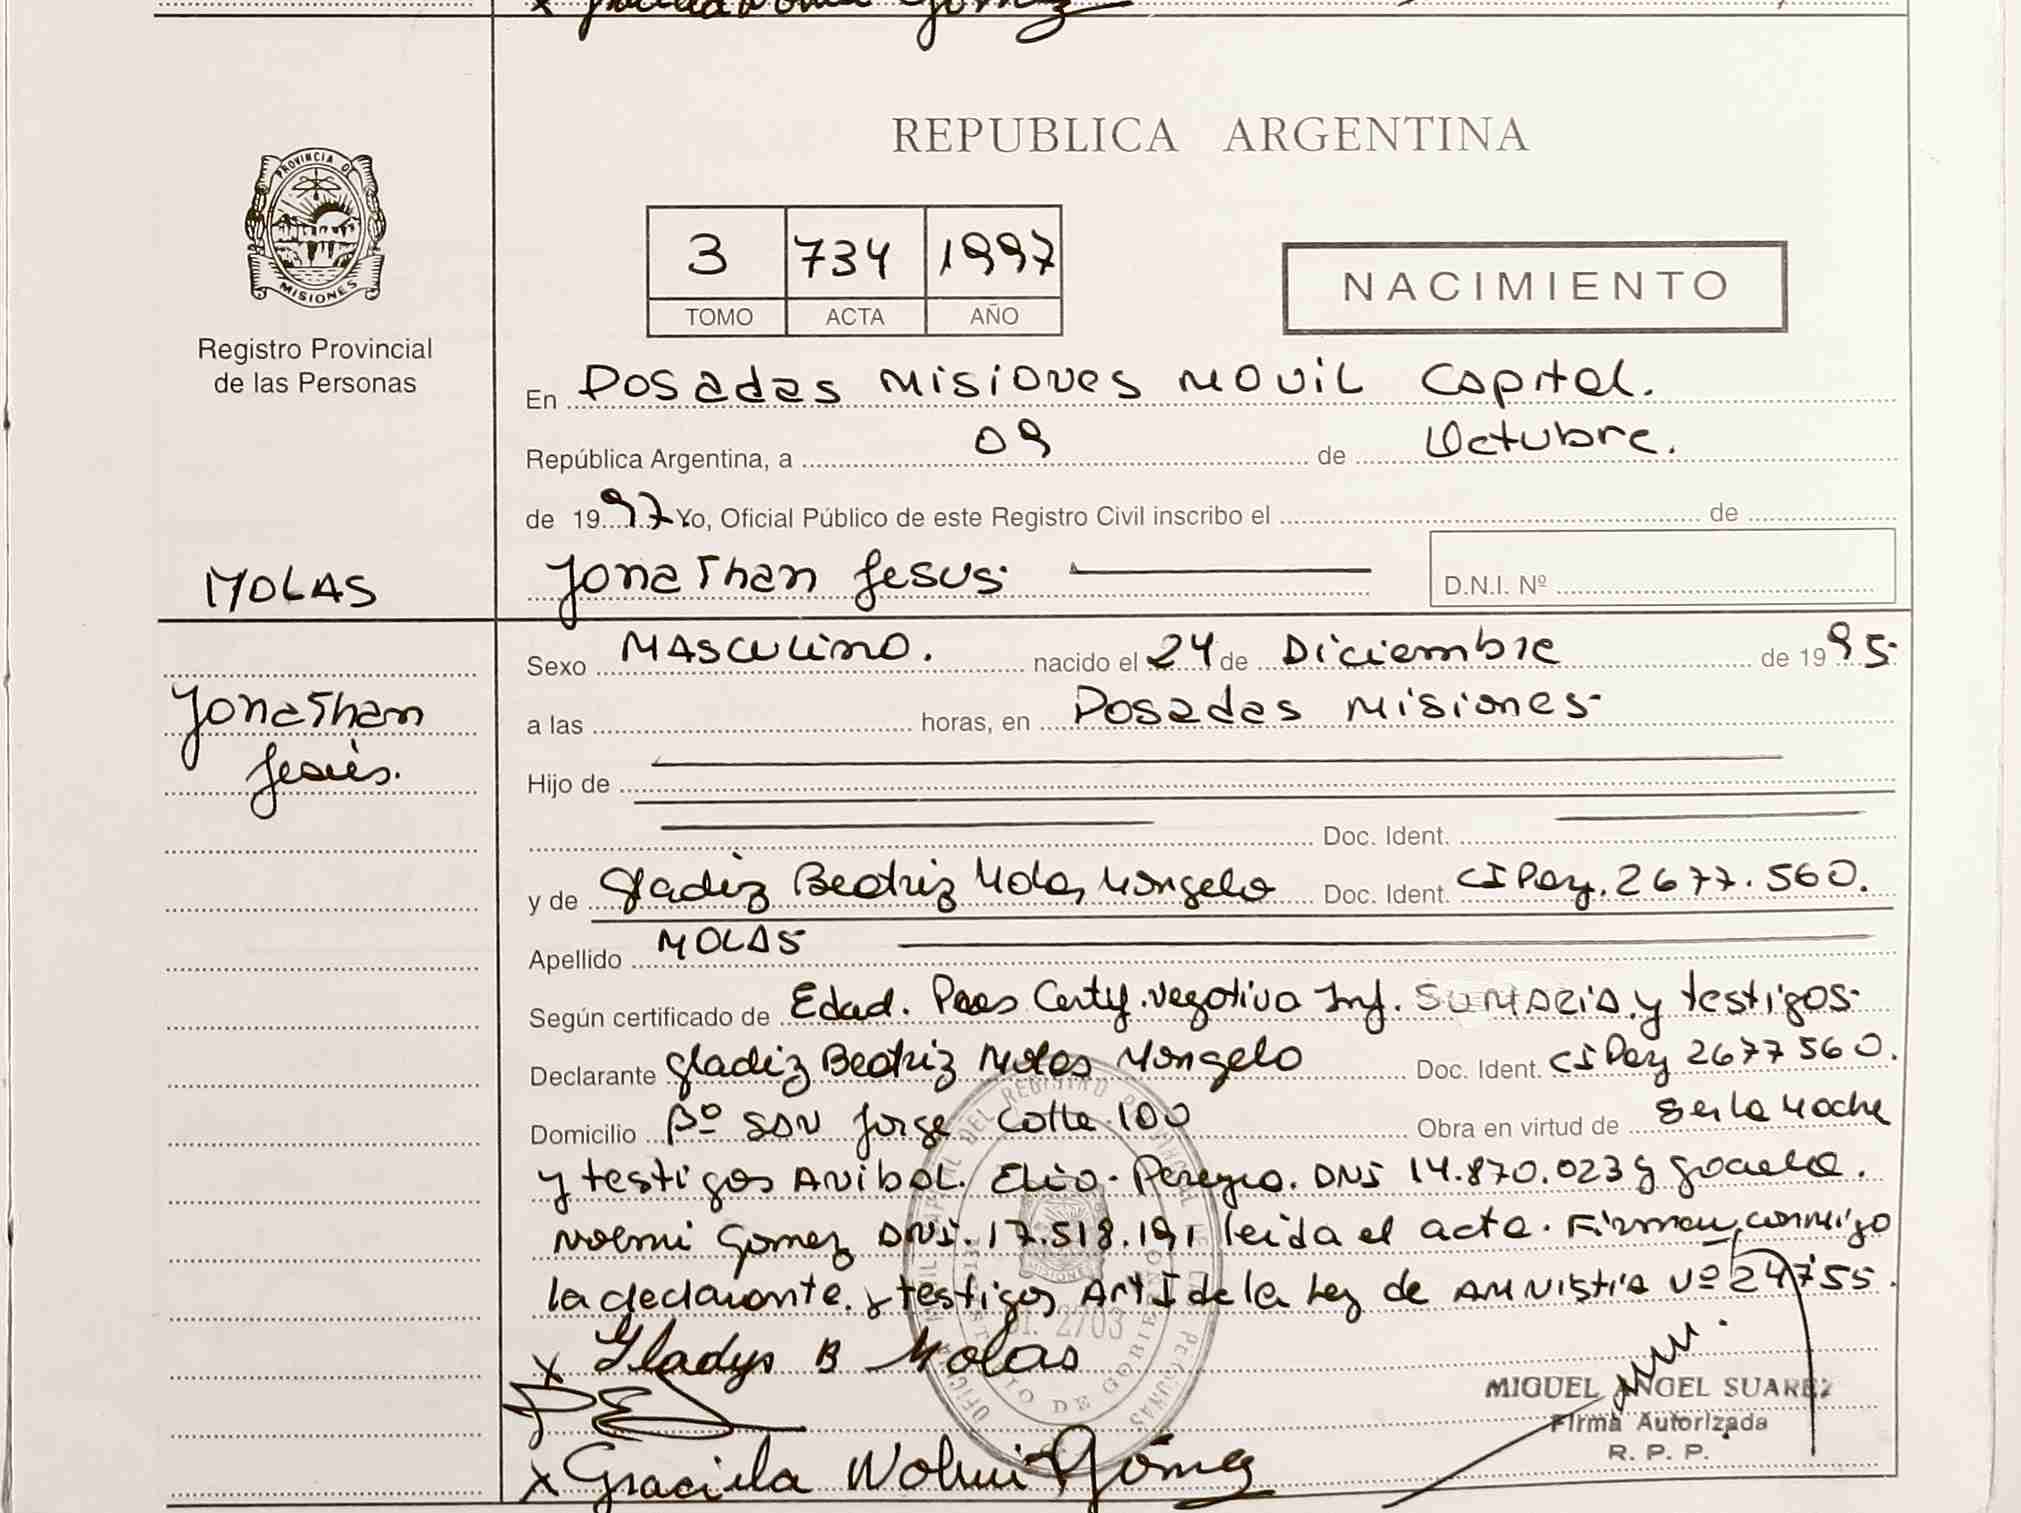 x Graciela Nolmi Gómez
REPUBLICA ARGENTINA
PROVINCIA DE
MISIONES
Registro Provincial
de las Personas
3 734 1997
TOMO ACTA AÑO
NACIMIENTO
En Posadas Misiones Movil Capital.
República Argentina, a 09 de Octubre.
de 1997 Yo, Oficial Público de este Registro Civil inscribo el de
MOLAS
Jonathan Jesus.
D.N.I. Nº
Jonathan
Jesús.
Sexo MASCULINO. nacido el 24 de Diciembre de 1995.
a las horas, en Posadas Misiones.
Hijo de
Doc. Ident.
y de Gladiz Beatriz Molas Mongelo Doc. Ident. CI Pay. 2677.560.
Apellido MOLAS
Según certificado de Edad. Certif. negativo Inf. SUMARIA y testigos.
Declarante Gladiz Beatriz Molas Mongelo Doc. Ident. CI Pay 2677560.
Domicilio Bº SAN Jorge Calle 100 Obra en virtud de Ser la Madre
y testigos ANIBAL. Elio. DNI 14.870.023 y Graciela.
Nolmi Gomez DNI. 17.518.191 leida el acta. Firman conmigo
la declarante. y testigos Art I de la Ley de AMNISTIA Nº 24755.
x Gladys B Molas
MIGUEL ANGEL SUAREZ
Firma Autorizada
R. P. P.
x Graciela Nolmi Gómez